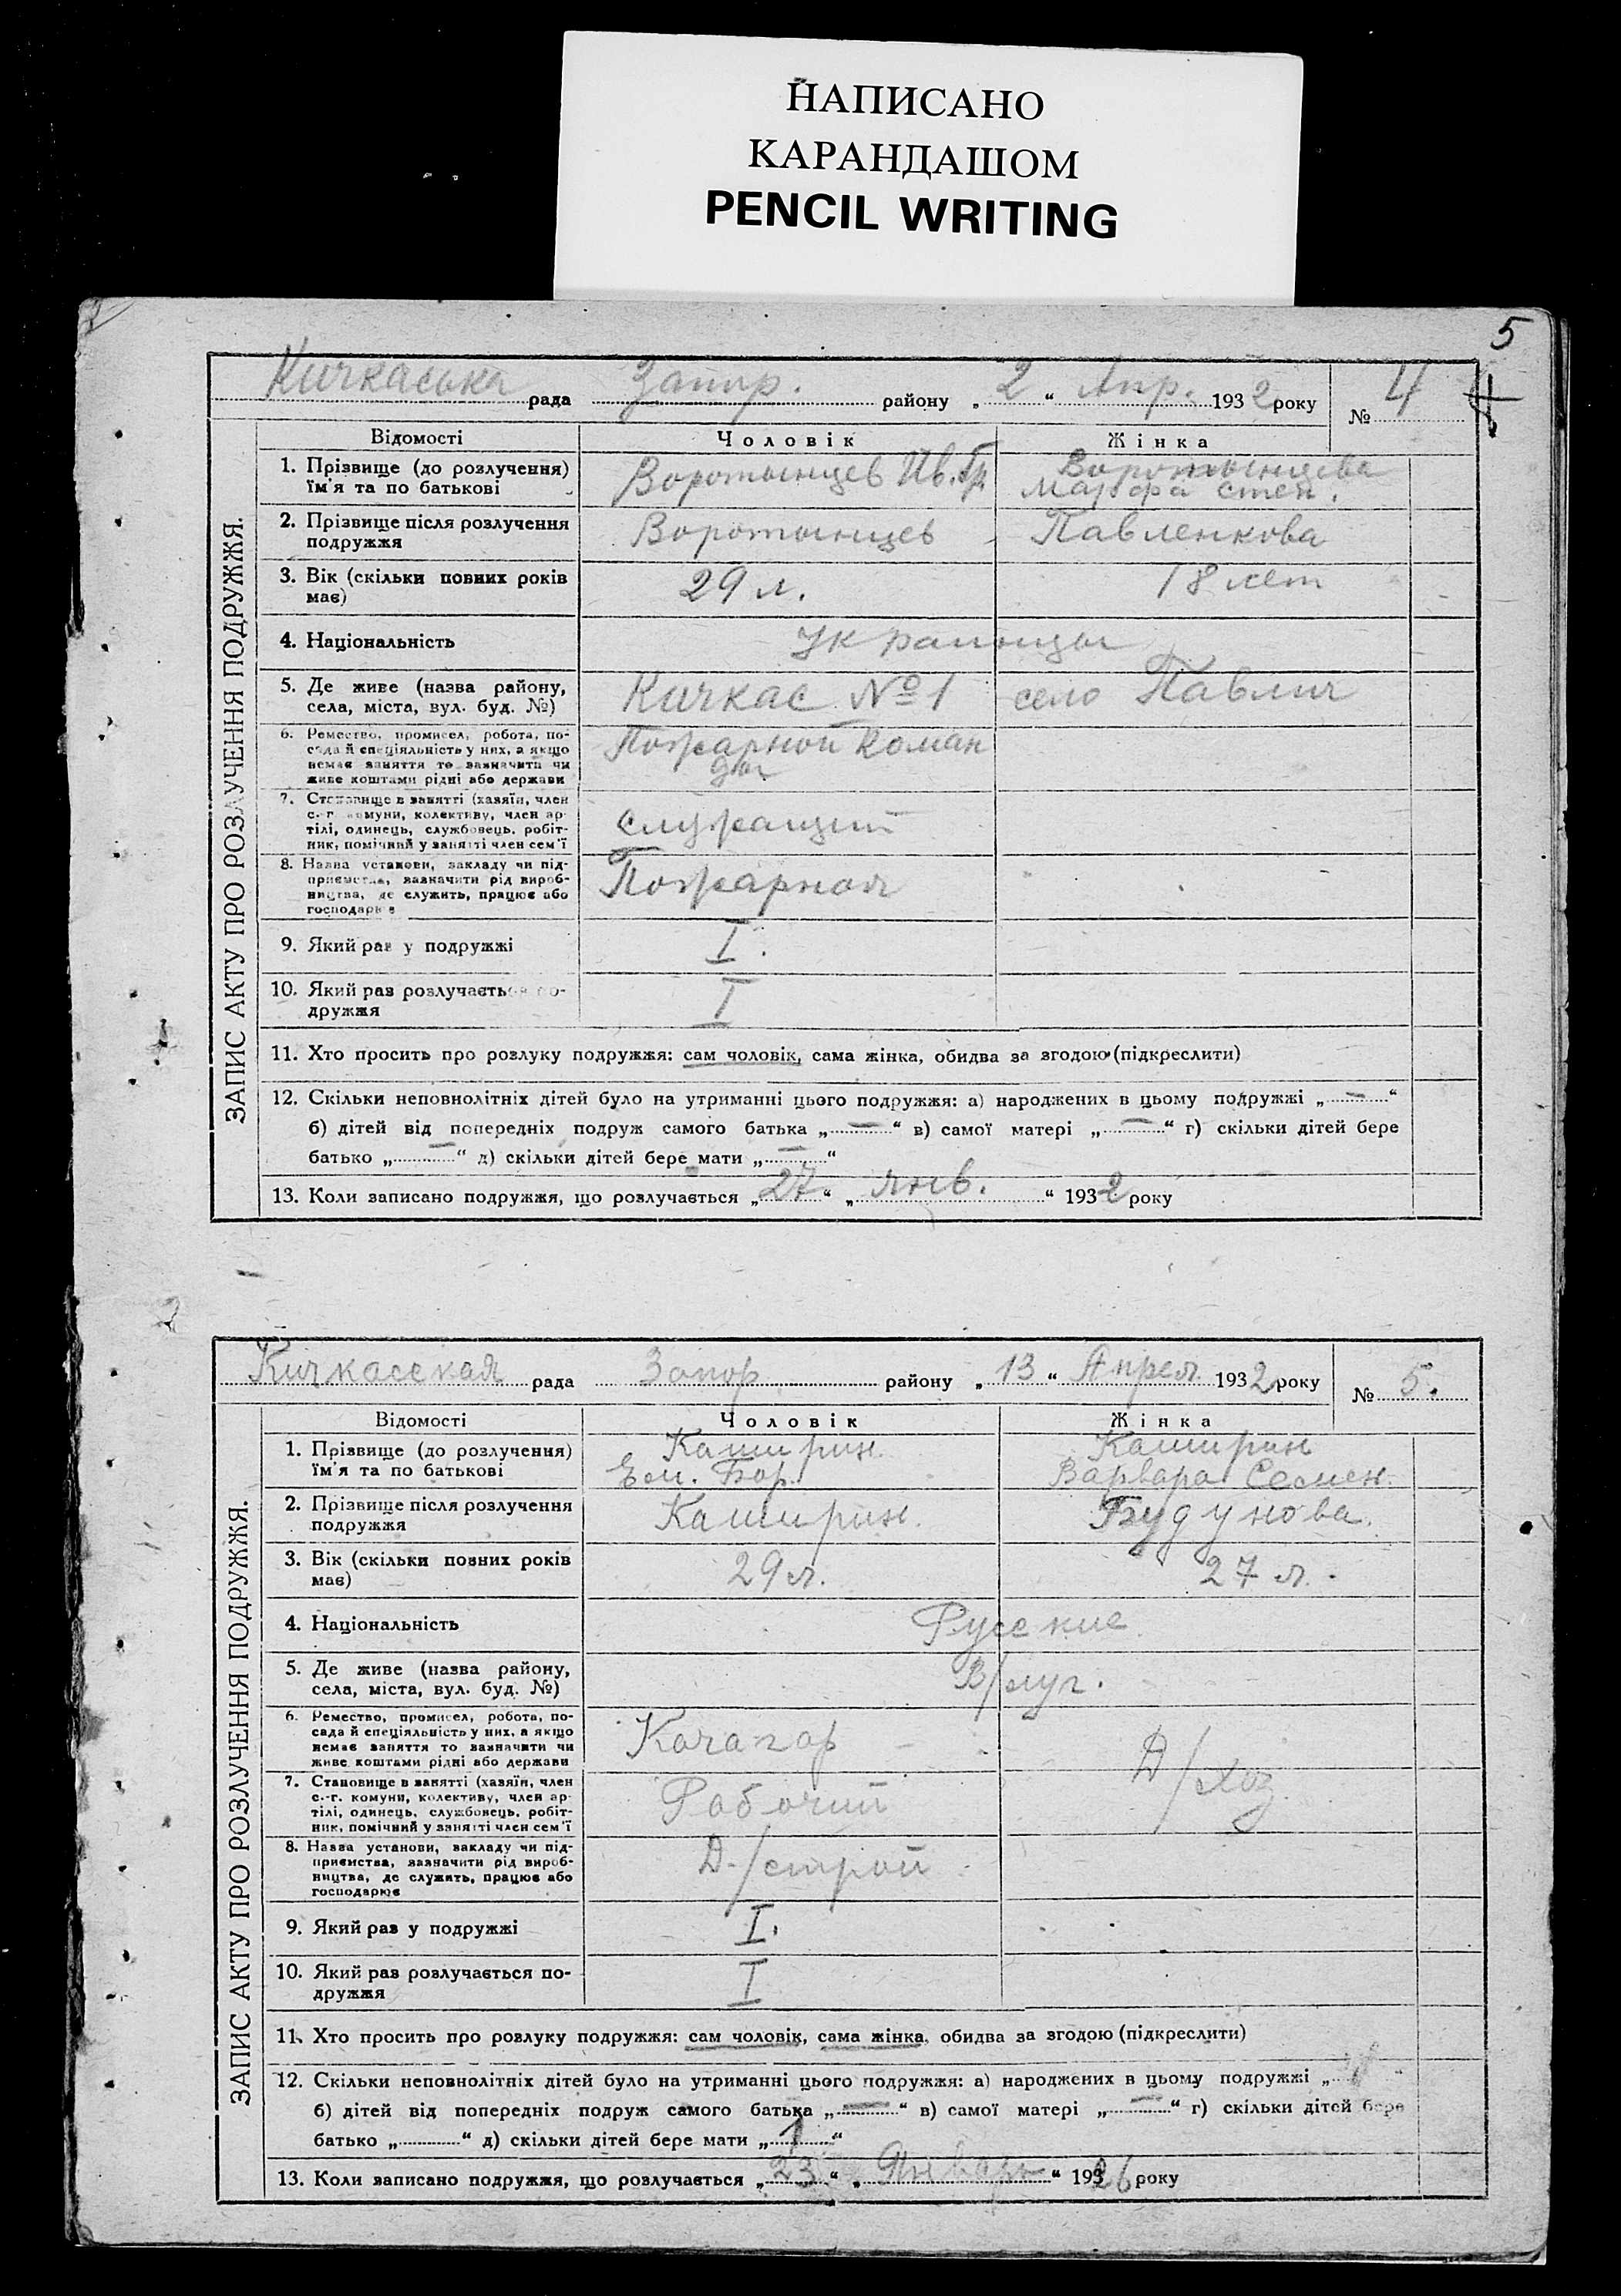 НАПИСАНО
КАРАНДАШОМ
PENCIL WRITING
5
Кичкаська рада Запор. району „2“ Апр. 1932 року № 4
ЗАПИС АКТУ ПРО РОЗЛУЧЕННЯ ПОДРУЖЖЯ.
Відомості Чоловік Жінка
1. Прізвище (до розлучення) Воротынцев Ив. Гр. Воротынцева
їм'я та по батькові Марфа степ.
2. Прізвище після розлучення Воротынцев Павленкова
подружжя
3. Вік (скільки повних років 29 л. 18 лет
має)
4. Національність Украинцы
5. Де живе (назва району, Кичкас №1 село Павлич
села, міста, вул. буд. №)
6. Ремество, промисел, робота, по- Пожарной коман
сада й спеціяльність у них, а якщо ды
немає заняття то зазначити чи
живе коштами рідні або держави
7. Становище в занятті (хазяїн, член
с.-г. комуни, колективу, член ар-
тілі, одинець, службовець, робіт- служащий
ник, помічний у занятті член сем'ї
8. Назва установи, закладу чи під-
приємства, зазначити рід вироб- Пожарная
ництва, де служить, працює або
господарює
9. Який раз у подружжі I.
10. Який раз розлучається по- I
дружжя
11. Хто просить про розлуку подружжя: сам чоловік, сама жінка, обидва за згодою (підкреслити)
12. Скільки неповнолітніх дітей було на утриманні цього подружжя: а) народжених в цьому подружжі „—“
б) дітей від попередніх подруж самого батька „—“ в) самої матері „—“ г) скільки дітей бере
батько „—“ д) скільки дітей бере мати „—“
13. Коли записано подружжя, що розлучається „27“ „янв.“ 1932 року
Кичкасская рада Запор району „13“ Апреля 1932 року № 5.
ЗАПИС АКТУ ПРО РОЗЛУЧЕННЯ ПОДРУЖЖЯ.
Відомості Чоловік Жінка
1. Прізвище (до розлучення) Каширин Каширин
їм'я та по батькові Ем. Бор. Варвара Семен.
2. Прізвище після розлучення Каширин. Будунова.
подружжя
3. Вік (скільки повних років 29 л. 27 л.
має)
4. Національність Русские
5. Де живе (назва району, В/луг.
села, міста, вул. буд. №)
6. Ремество, промисел, робота, по-
сада й спеціяльність у них, а якщо Качагар
немає заняття то зазначити чи Д/хоз
живе коштами рідні або держави
7. Становище в занятті (хазяїн, член
с.-г. комуни, колективу, член ар- Рабочий
тілі, одинець, службовець, робіт-
ник, помічний у занятті член сем'ї
8. Назва установи, закладу чи під-
приємства, зазначити рід вироб- Д-/строй
ництва, де служить, працює або
господарює
9. Який раз у подружжі I.
10. Який раз розлучається по- I
дружжя
11. Хто просить про розлуку подружжя: сам чоловік, сама жінка, обидва за згодою (підкреслити)
12. Скільки неповнолітніх дітей було на утриманні цього подружжя: а) народжених в цьому подружжі „
б) дітей від попередніх подруж самого батька „—“ в) самої матері „—“ г) скільки дітей бере
батько „ “ д) скільки дітей бере мати „1“
13. Коли записано подружжя, що розлучається „23“ „Январь“ 1926 року